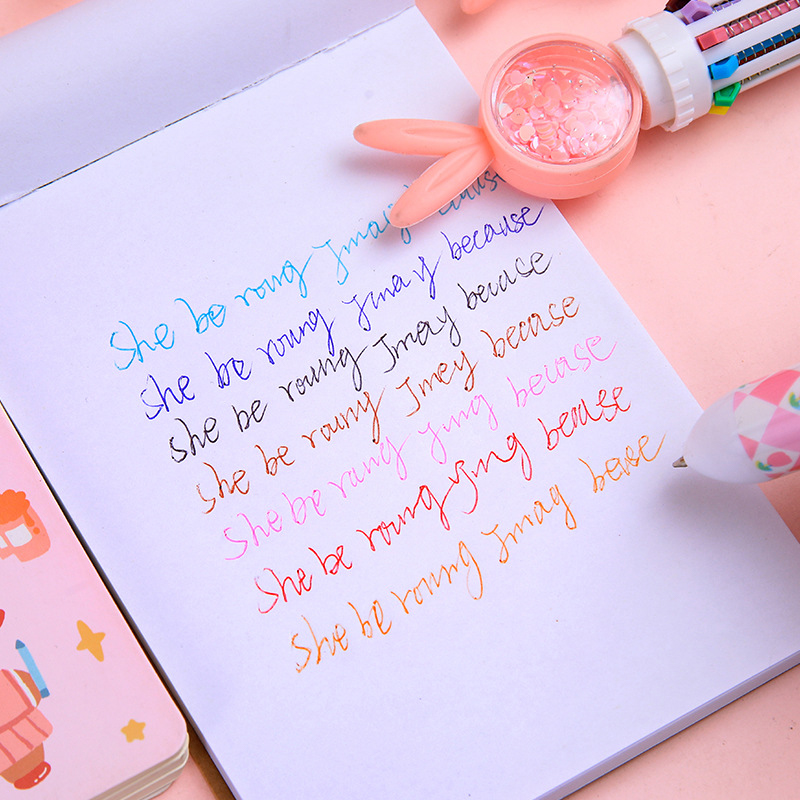 She be roung Jmay
She be roung Jmay because
She be roung Jmay becuase
She be roung Jmey becuase
She be rang Jing becuase
She be roung ying becuse
She be roung Jmag beuse